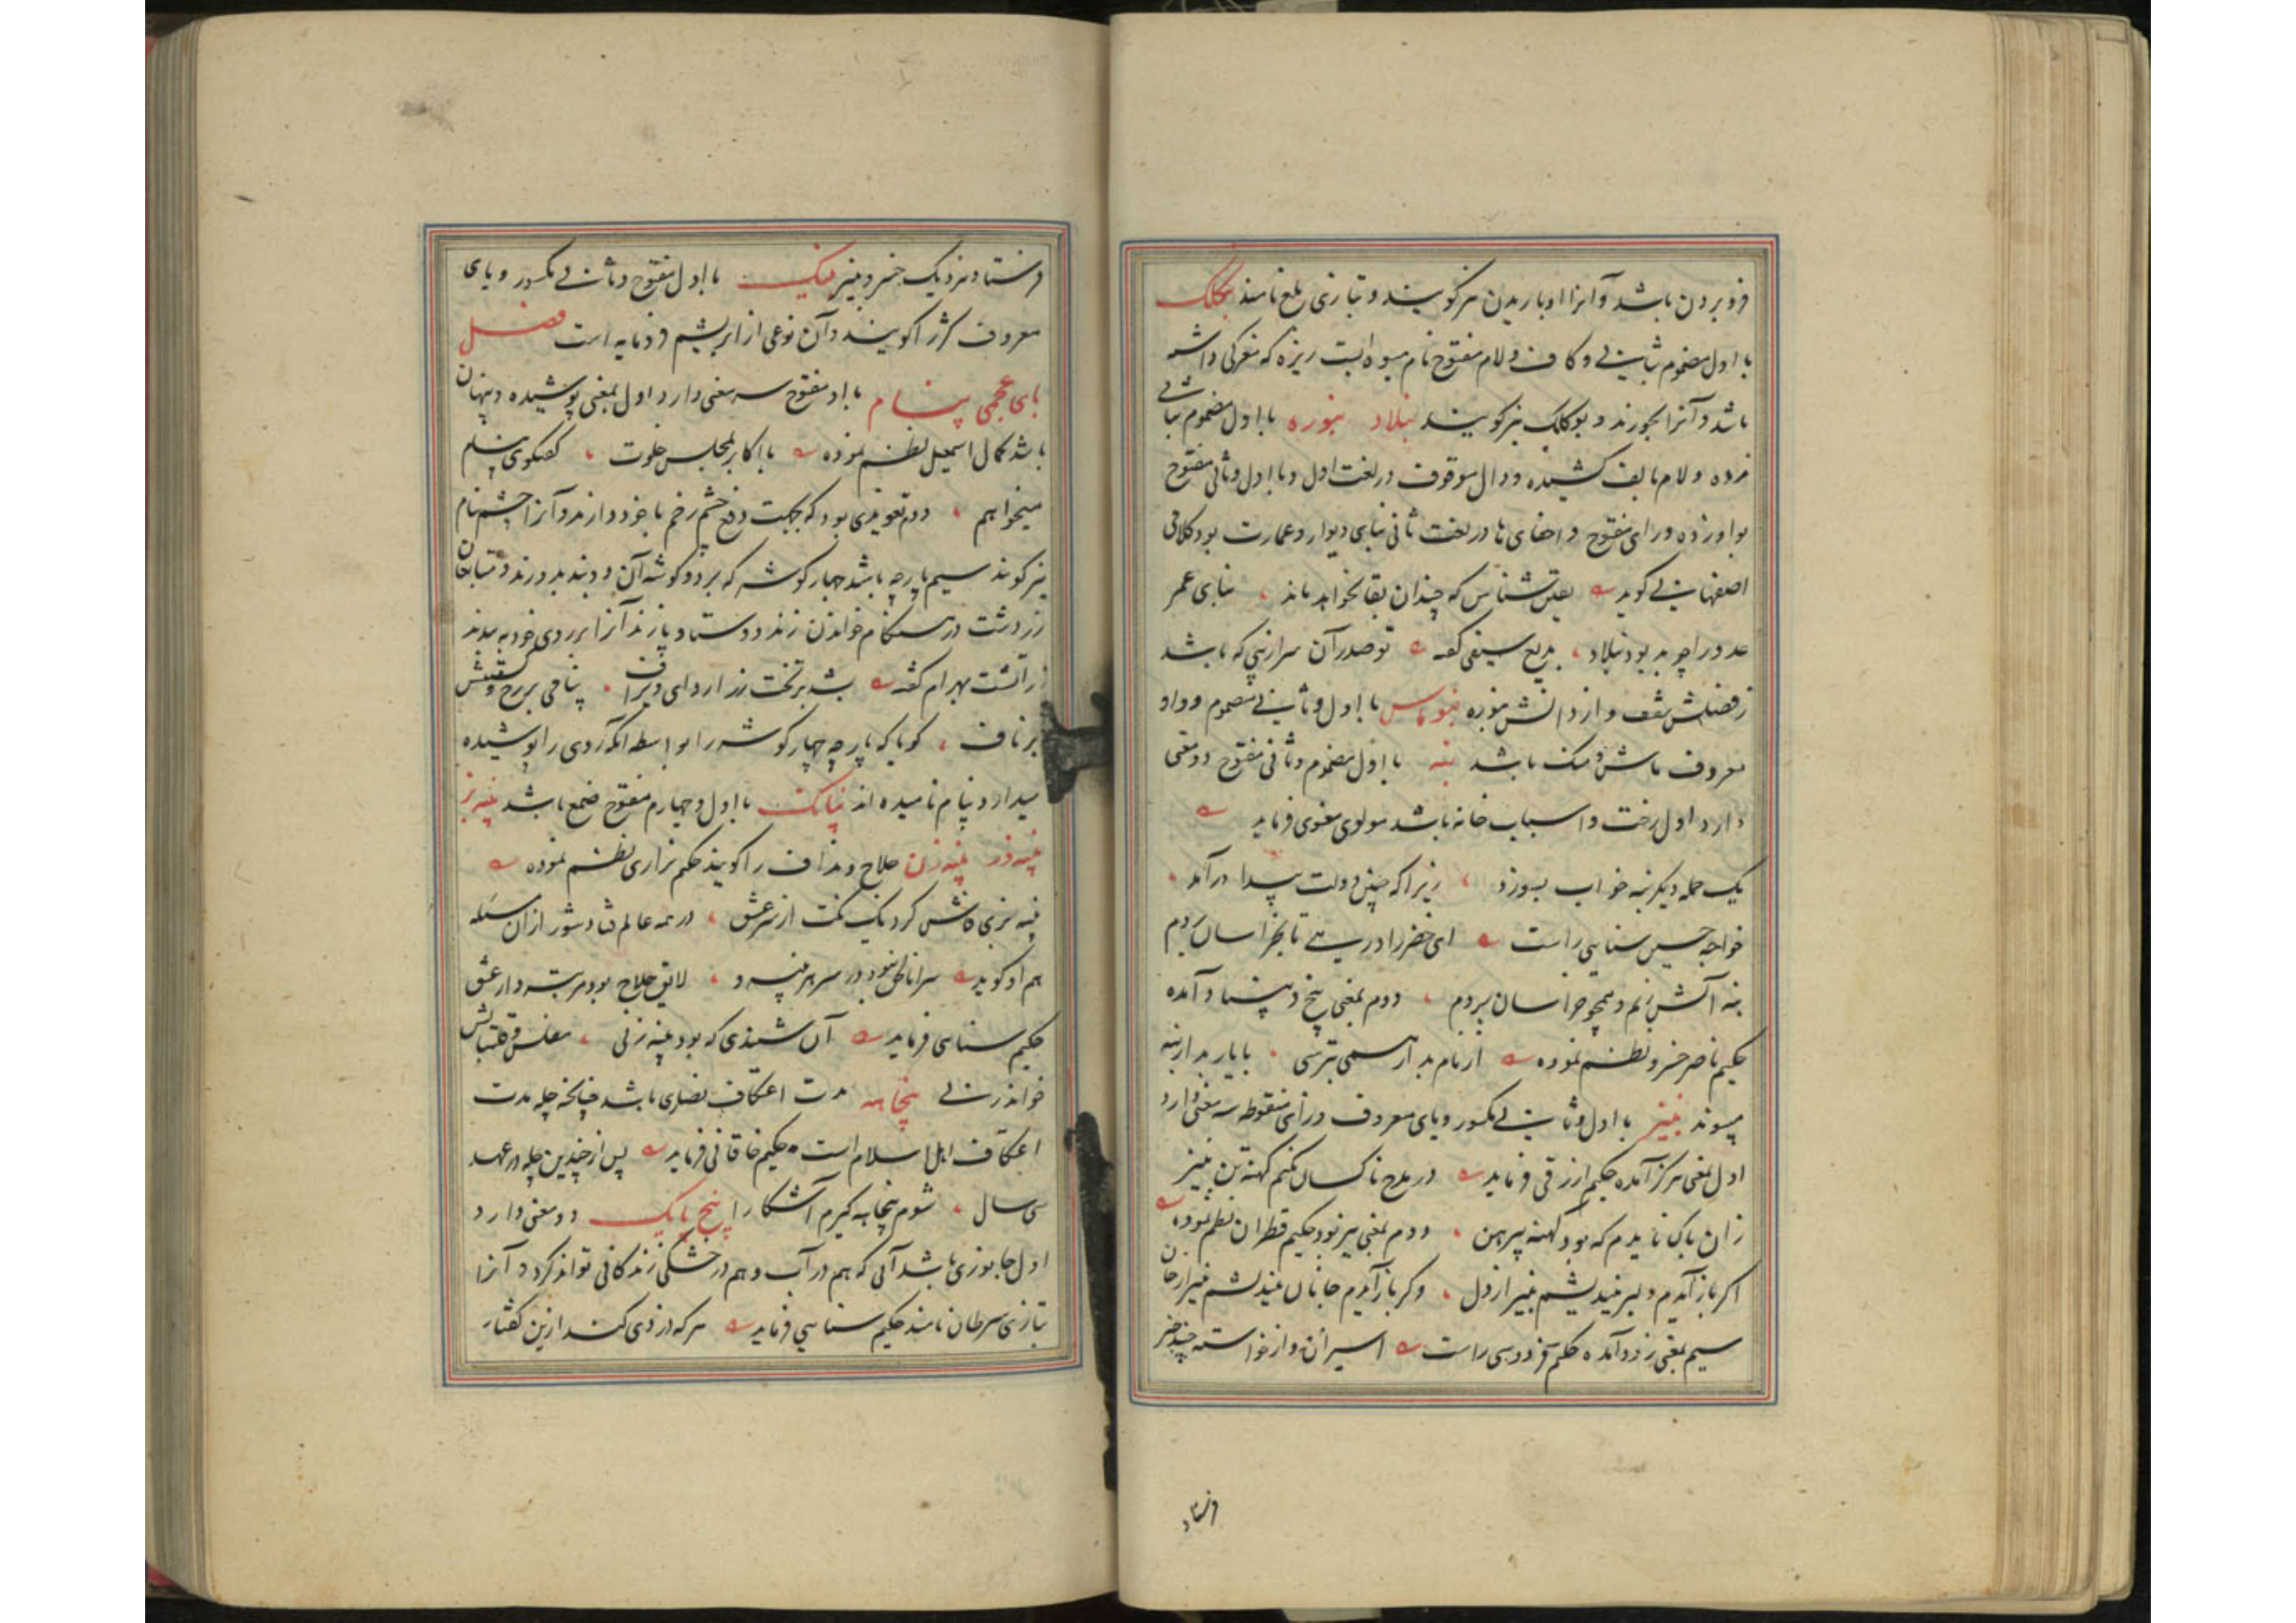 فرو بردن باشد و آنرا اوباریدن نیز کویند و بتازی بلع نامند بنکلک
با اول مضموم بثانی و کاف و لام مفتوح نام میوه ایست ریزه که مغزکی داشته
باشد و آنرا بخورند و بوکلک نیز کویند بنلاد بنوره با اول مضموم بثانی
زده و لام بالف کشیده و دال موقوف در لغت اول و با اول و ثانی مفتوح
بواو زده و رای مفتوح و اخفای ها در لغت ثانی بنای دیوار و عمارت بود کلامی
اصفهانی کوید یقین شناس که چندان بقا نخواهد ماند بنای عمر
عدو را چو بد بود بنلاد بدیع سیفی کفته تو صدر آن سرایی که باشد
ز فضلش سقف و از دانش بنوره بنوماس با اول و ثانی مضموم و واو
معروف ماش و منک باشد بنه با اول مضموم و ثانی مفتوح دو معنی
دارد اول رخت و اسباب خانه باشد مولوی معنوی فرماید
یک حمله دیکر بنه خواب بسوزد زیرا که چنین دولت بیدار درآمد
خواجه حسین سنایی راست ای خضر راه در پی تا بخراسان بردم
بنه آتش زنم و همچو خراسان بردم دوم بمعنی بیخ و بنیاد آمده
حکیم ناصر خسرو نظم نموده از نام بد ار همی بترسی با یار بد از بنه
مپیوند بنیز با اول و ثانی مکسور و یای معروف و زای منقوطه سه معنی دارد
اول بمعنی هرکز آمده حکیم ازرقی فرماید در مدح ناکسان نکنم کهنه تن بنیز
زان باک نایدم که بود کهنه پیرهن دوم بمعنی نیز بود حکیم قطران نظم نموده
اکر باز آیدم دلبر نیندیشم بنیز از دل وکر باز آیدم جانان نیندیشم بنیز از جان
سیم بمعنی زود آمده حکیم فردوسی راست اسیران و از خواسته چند چیز
فرستاد
فرستاد نزدیک خسرو بنیز بنیک با اول مفتوح و ثانی مکسور و یای
معروف کژ را کویند و آن نوعی از ابریشم فرومایه است فصل
بای عجمی پنام با اول مفتوح سه معنی دارد اول بمعنی پوشیده و پنهان
باشد کمال اسمعیل نظم نموده با اکابر بمجلس خلوت کفتکوی پنام
میخواهم دوم تعویذی بود که بجهت دفع چشم زخم با خود دارند و آنرا چشم پنام
نیز کویند سیم پارچه باشد چهار کوشه که بر دو کوشه آن دو بند بدوزند و متابعان
زردشت در هنکام خواندن زند و وستا و پازند آنرا بر روی خود به بندند
زراتشت بهرام کفته بشد بر تخت زر اردای ویراف پنامی بر رخ و کستیش
بر ناف کویا که پارچه چهار کوشه را بواسطه آنکه روی را پوشیده
میدارد پنام نامیده اند پنانک با اول و چهارم مفتوح صمغ باشد پنبه بز
پنبه وز پنبه زن حلاج و نداف را کویند حکیم نزاری نظم نموده
پنبه بزی فاش کرد یک نکت از سر عشق در همه عالم فتاد شور ازان مسئله
هم او کوید سر انا الحق نبود در سر هر پنبه زن لایق حلاج بود مرتبه دار عشق
حکیم سنایی فرماید آن شنیدی که بود پنبه زنی مفلس و قلتبانش
خواند زنی پنجاهه مدت اعتکاف نصاری باشد چنانچه چله مدت
اعتکاف اهل اسلام است حکیم خاقانی فرماید پس از چندین چله در عهد
سی سال شوم پنجاهه کیرم آشکارا پنج پایک دو معنی دارد
اول جانوری باشد آبی که هم در آب و هم در خشکی زندکانی تواند کرد و آنرا
بتازی سرطان نامند حکیم سنایی فرماید هر که دزدی کند ازین کفتار